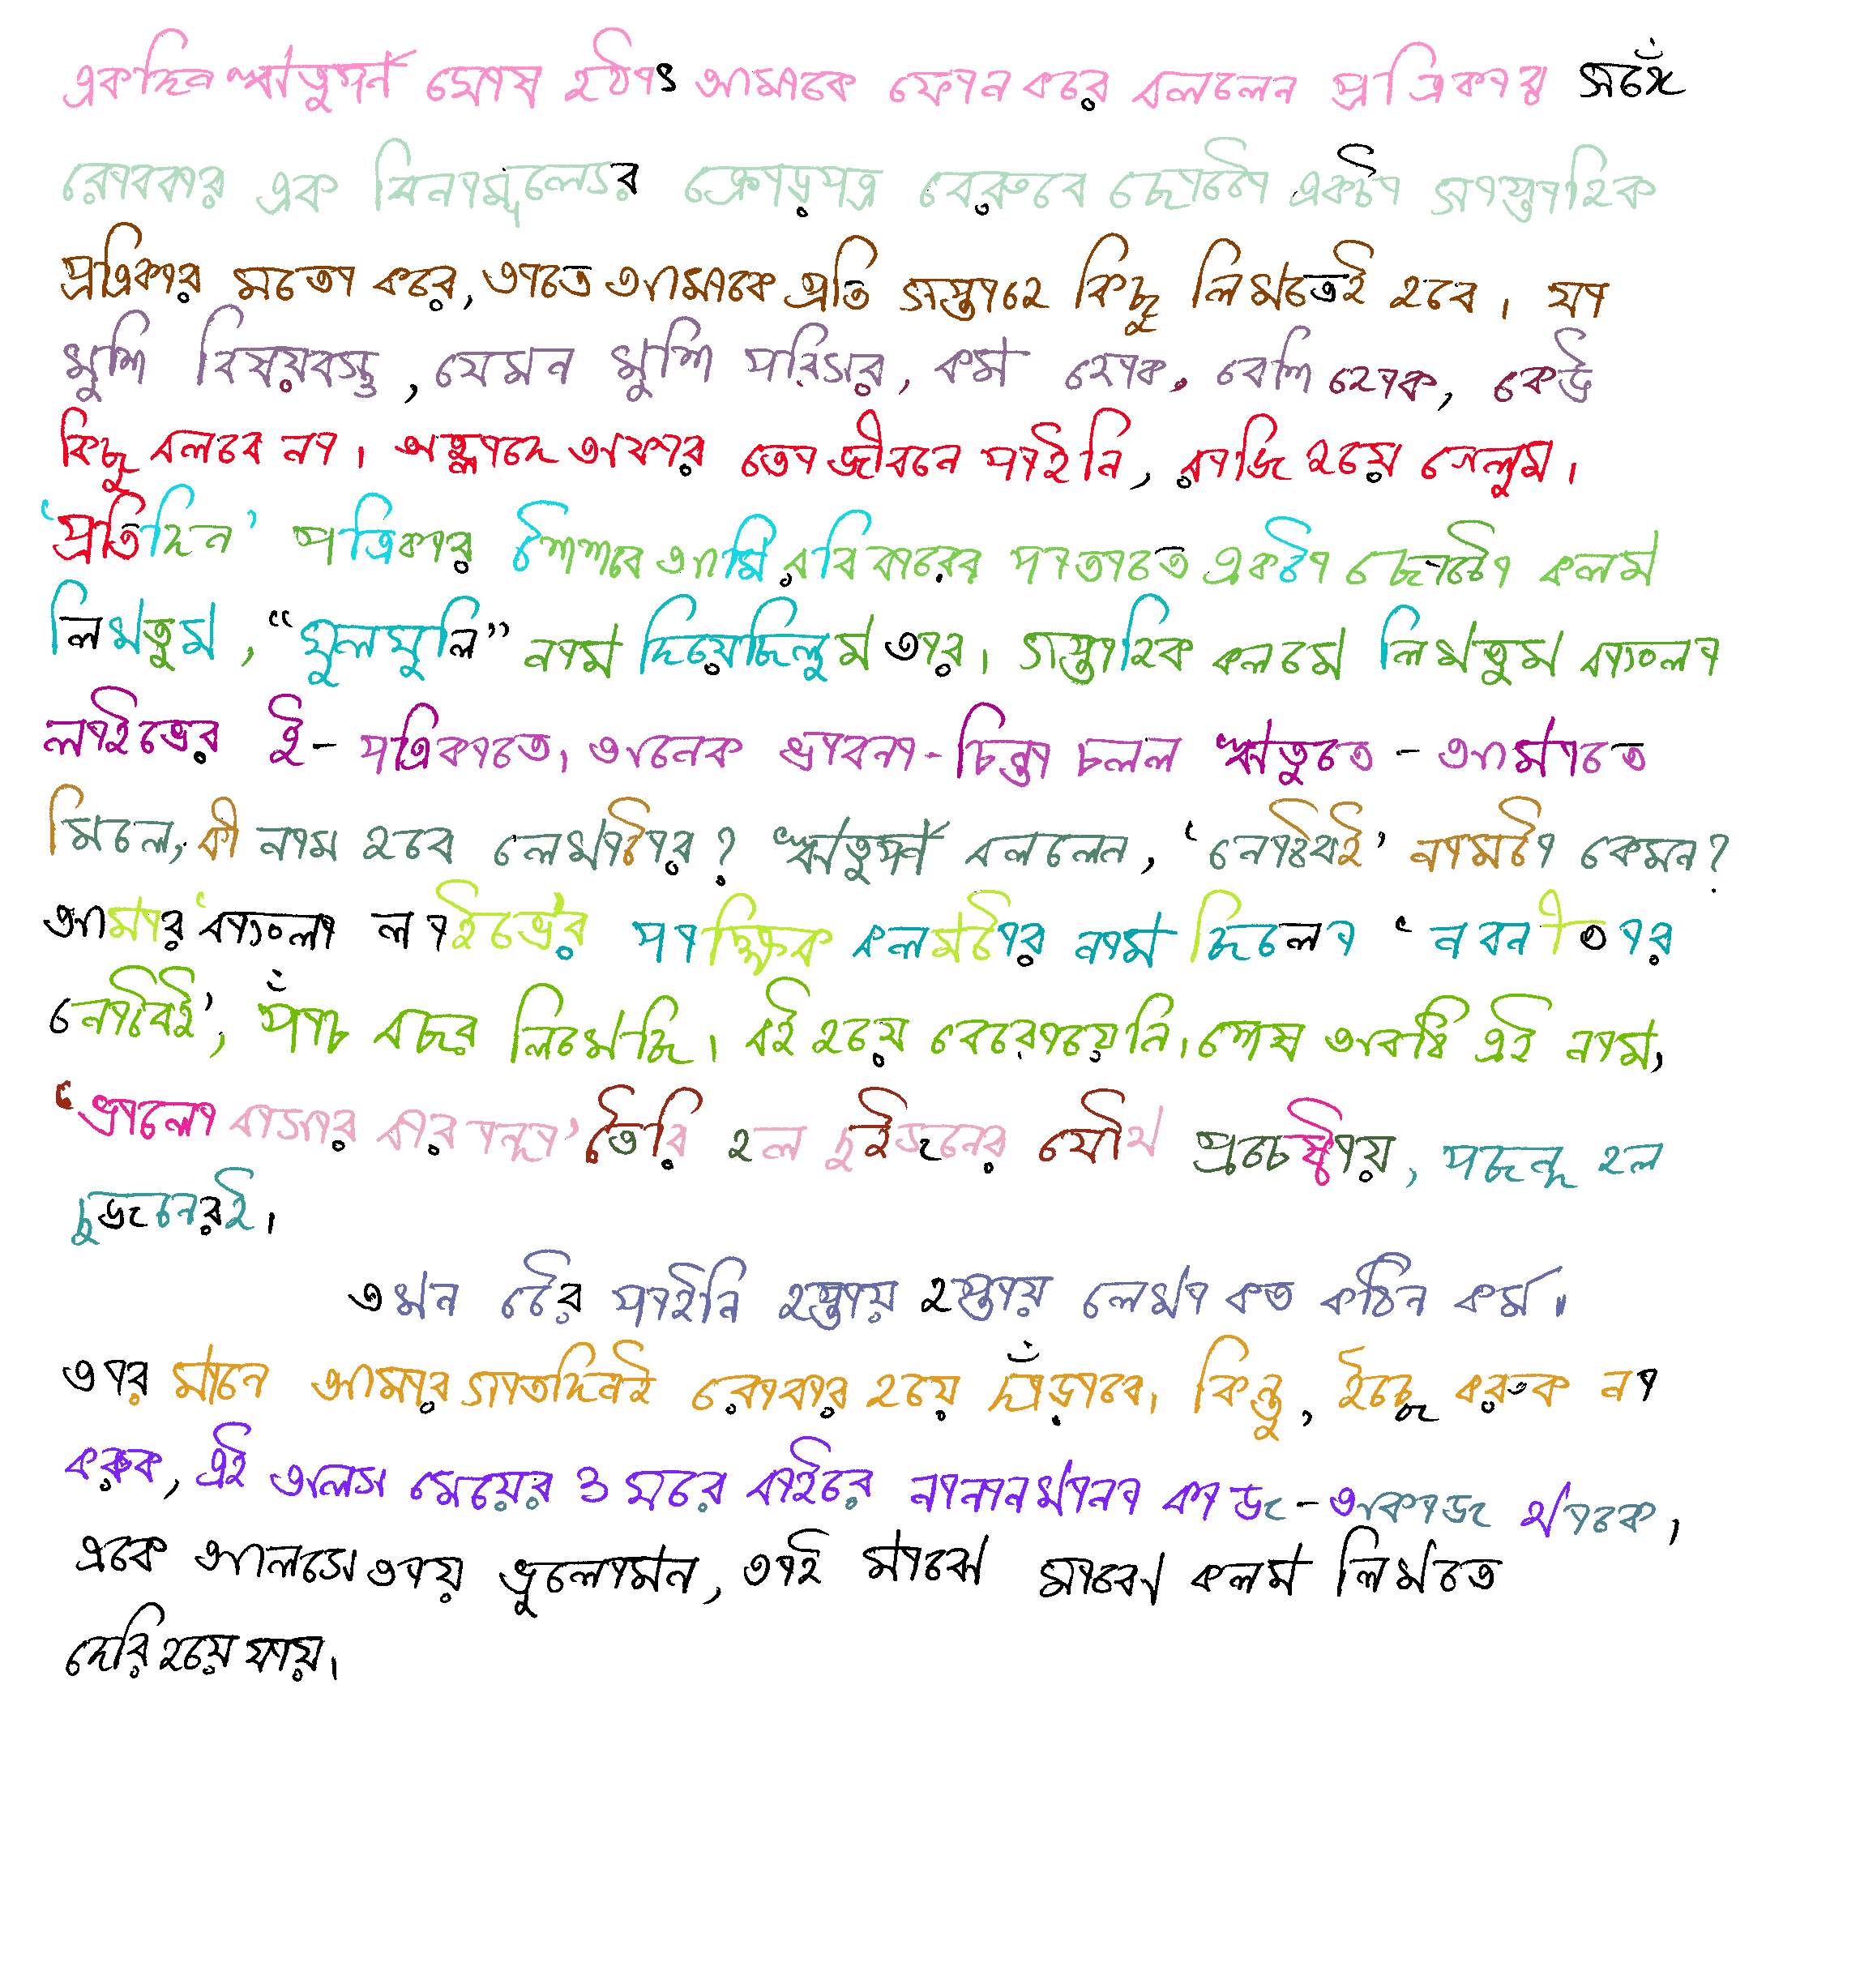 একদিন ঋতুপর্ণ ঘোষ হঠাৎ আমাকে ফোন করে বললেন প্রত্রিকায় সঙ্গে
রোববার এক বিনামূল্যের ক্রোড়পত্র বেরুবে ছোটো একটা সাপ্তাহিক
প্রত্রিকার মতো করে, তাতে আমাকে প্রতি সপ্তাহে কিছু লিখতেই হবে। যা
খুশি বিষয়বস্তু, যেমন খুশি পরিসর, কম হোক, বেশি হোক, কেউ
কিছু বলবে না। আহ্লাদে অফার তো জীবনে পাইনি, রাজি হয়ে গেলুম।
‘প্রতিদিন’ পত্রিকার শৈশবে আমি রবিবারের পাতাতে একটা ছোটো কলম
লিখতুম, “ঘুলঘুলি” নাম দিয়েছিলুম তার। সপ্তাহিক কলমে লিখতুম বাংলা
লাইভের ই- পত্রিকাতে, অনেক ভাবনা-চিন্তা চলল ঋতুতে - আমাতে
মিলে, কী নাম হবে লেখাটার? ঋতুপর্ণ বললেন, ‘নোটবই’ নামটা কেমন?
আমার ‘বাংলা লাইভে’র পাক্ষিক কলমটার নাম ছিলো ‘নবনীতার
নোটবই’, পাঁচ বছর লিখেছি। বই হয়ে বেরোয়েনি। শেষ অবধি এই নাম,
‘ভালোবাসার বারান্দা’ তৈরি হল দুইজনের যৌথ প্রচেষ্টায়, পছন্দ হল
দুজনেরই।
তখন টের পাইনি হপ্তায় হপ্তায় লেখা কত কঠিন কর্ম।
তার মানে আমার সাতদিনই রোববার হয়ে দাঁড়াবে। কিন্তু, ইচ্ছে করুক না
করুক, এই অলস মেয়ের ও ঘরে বাইরে নানানখানা কাজ-অকাজ থাকে,
একে আলসে তায় ভুলোমন, তাই মাঝে মাঝে কলম লিখতে
দেরি হয়ে যায়।